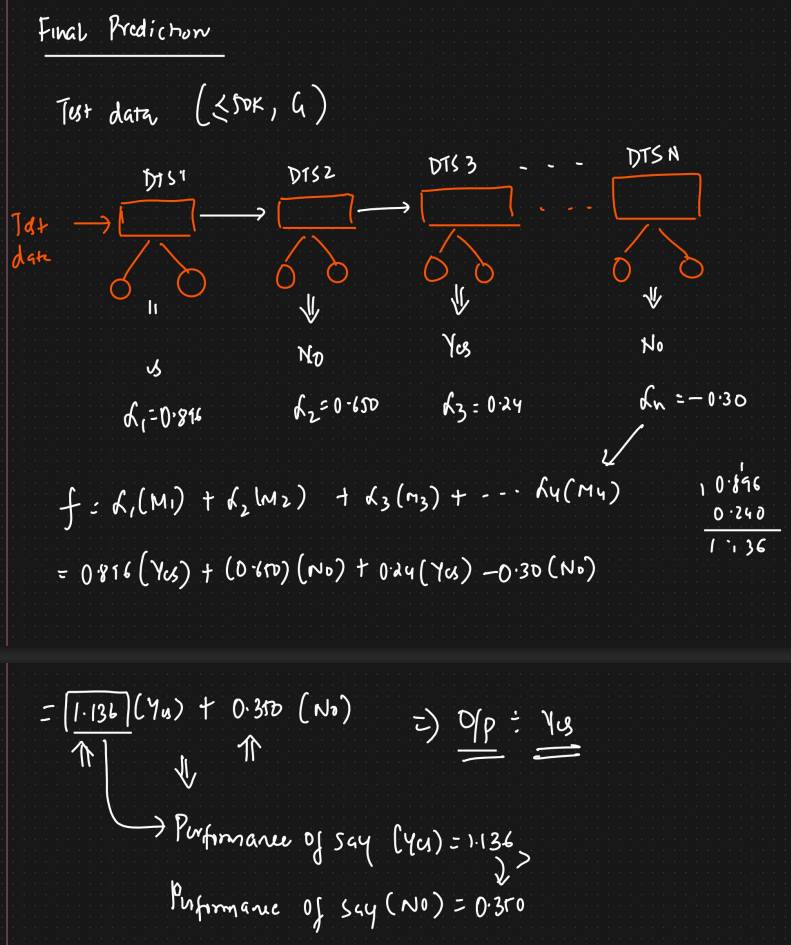 Final Prediction
Test data (≤50K, G)
DTS1 DTS2 DTS3 - - - DTSN
Test data
No Yes No
α₁=0.896 α₂=0.650 α₃=0.24 αn=-0.30
f = α₁(M₁) + α₂(M₂) + α₃(M₃) + --- α₄(M₄)
0.896
0.240
1.136
= 0.896 (Yes) + (0.650) (No) + 0.24 (Yes) -0.30 (No)
= 1.136 (Yes) + 0.350 (No) ⇒ O/p : Yes
Performance of say (Yes) = 1.136 >
Performance of say (No) = 0.350